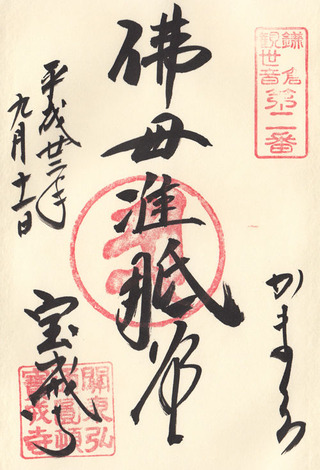 鎌倉
観世音
第二番
かまくら
佛母准胝尊
平成廿二年
九月十一日
宝戒寺
關東弘
寶戒寺